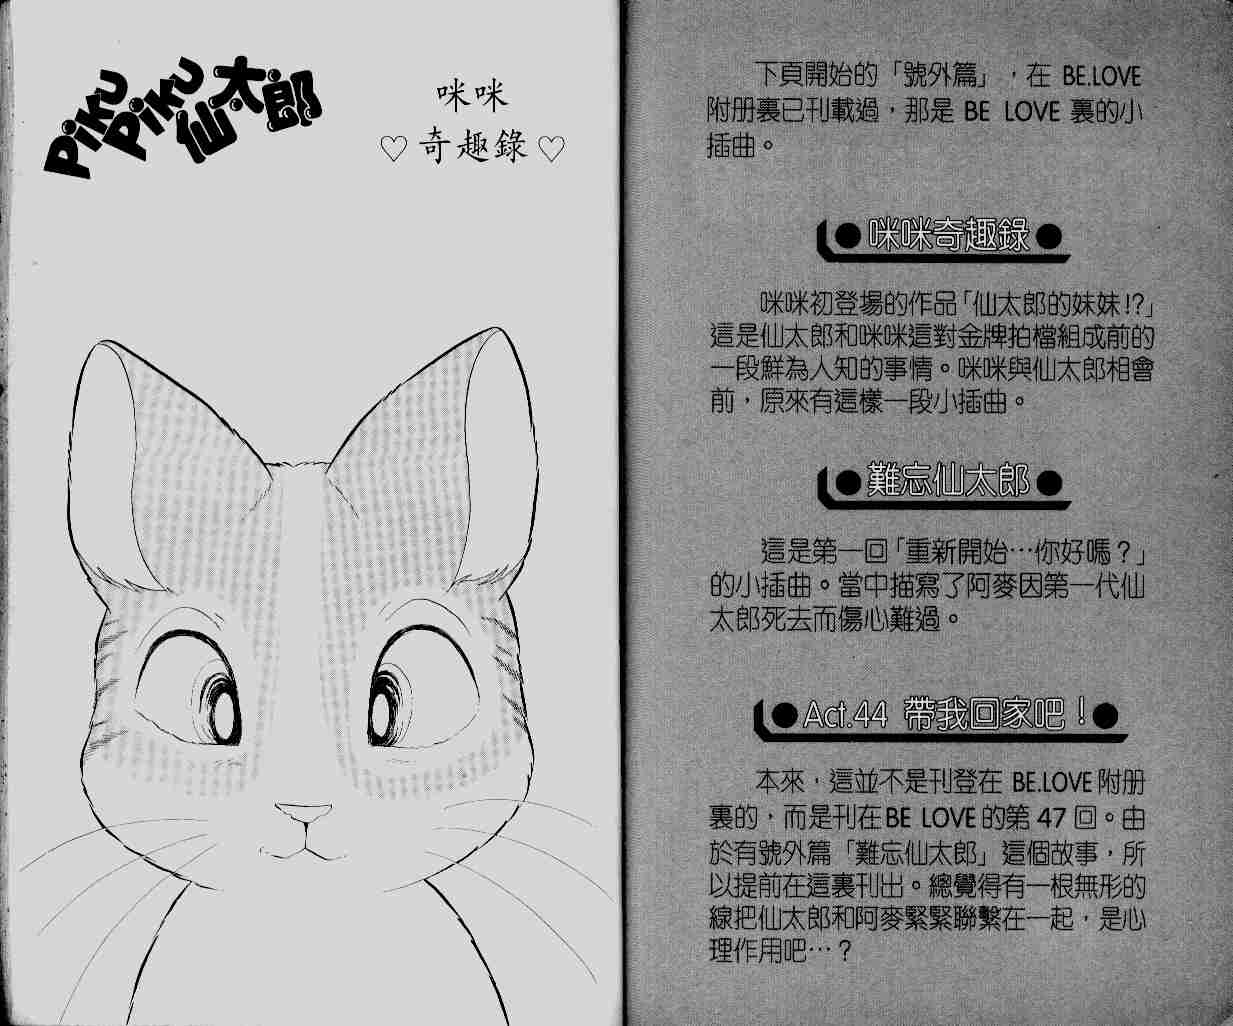 PiKU
PiKU
仙太郎
咪咪
♡奇趣錄♡
下頁開始的「號外篇」，在 BE.LOVE
附册裏已刊載過，那是 BE LOVE 裏的小
插曲。
●咪咪奇趣錄●
咪咪初登場的作品「仙太郎的妹妹!?」
這是仙太郎和咪咪這對金牌拍檔組成前的
一段鮮為人知的事情。咪咪與仙太郎相會
前，原來有這樣一段小插曲。
●難忘仙太郎●
這是第一回「重新開始…你好嗎？」
的小插曲。當中描寫了阿麥因第一代仙
太郎死去而傷心難過。
●Act.44 帶我回家吧！●
本來，這並不是刊登在 BE.LOVE 附册
裏的，而是刊在 BE LOVE 的第 47 回。由
於有號外篇「難忘仙太郎」這個故事，所
以提前在這裏刊出。總覺得有一根無形的
線把仙太郎和阿麥緊緊聯繫在一起，是心
理作用吧…？